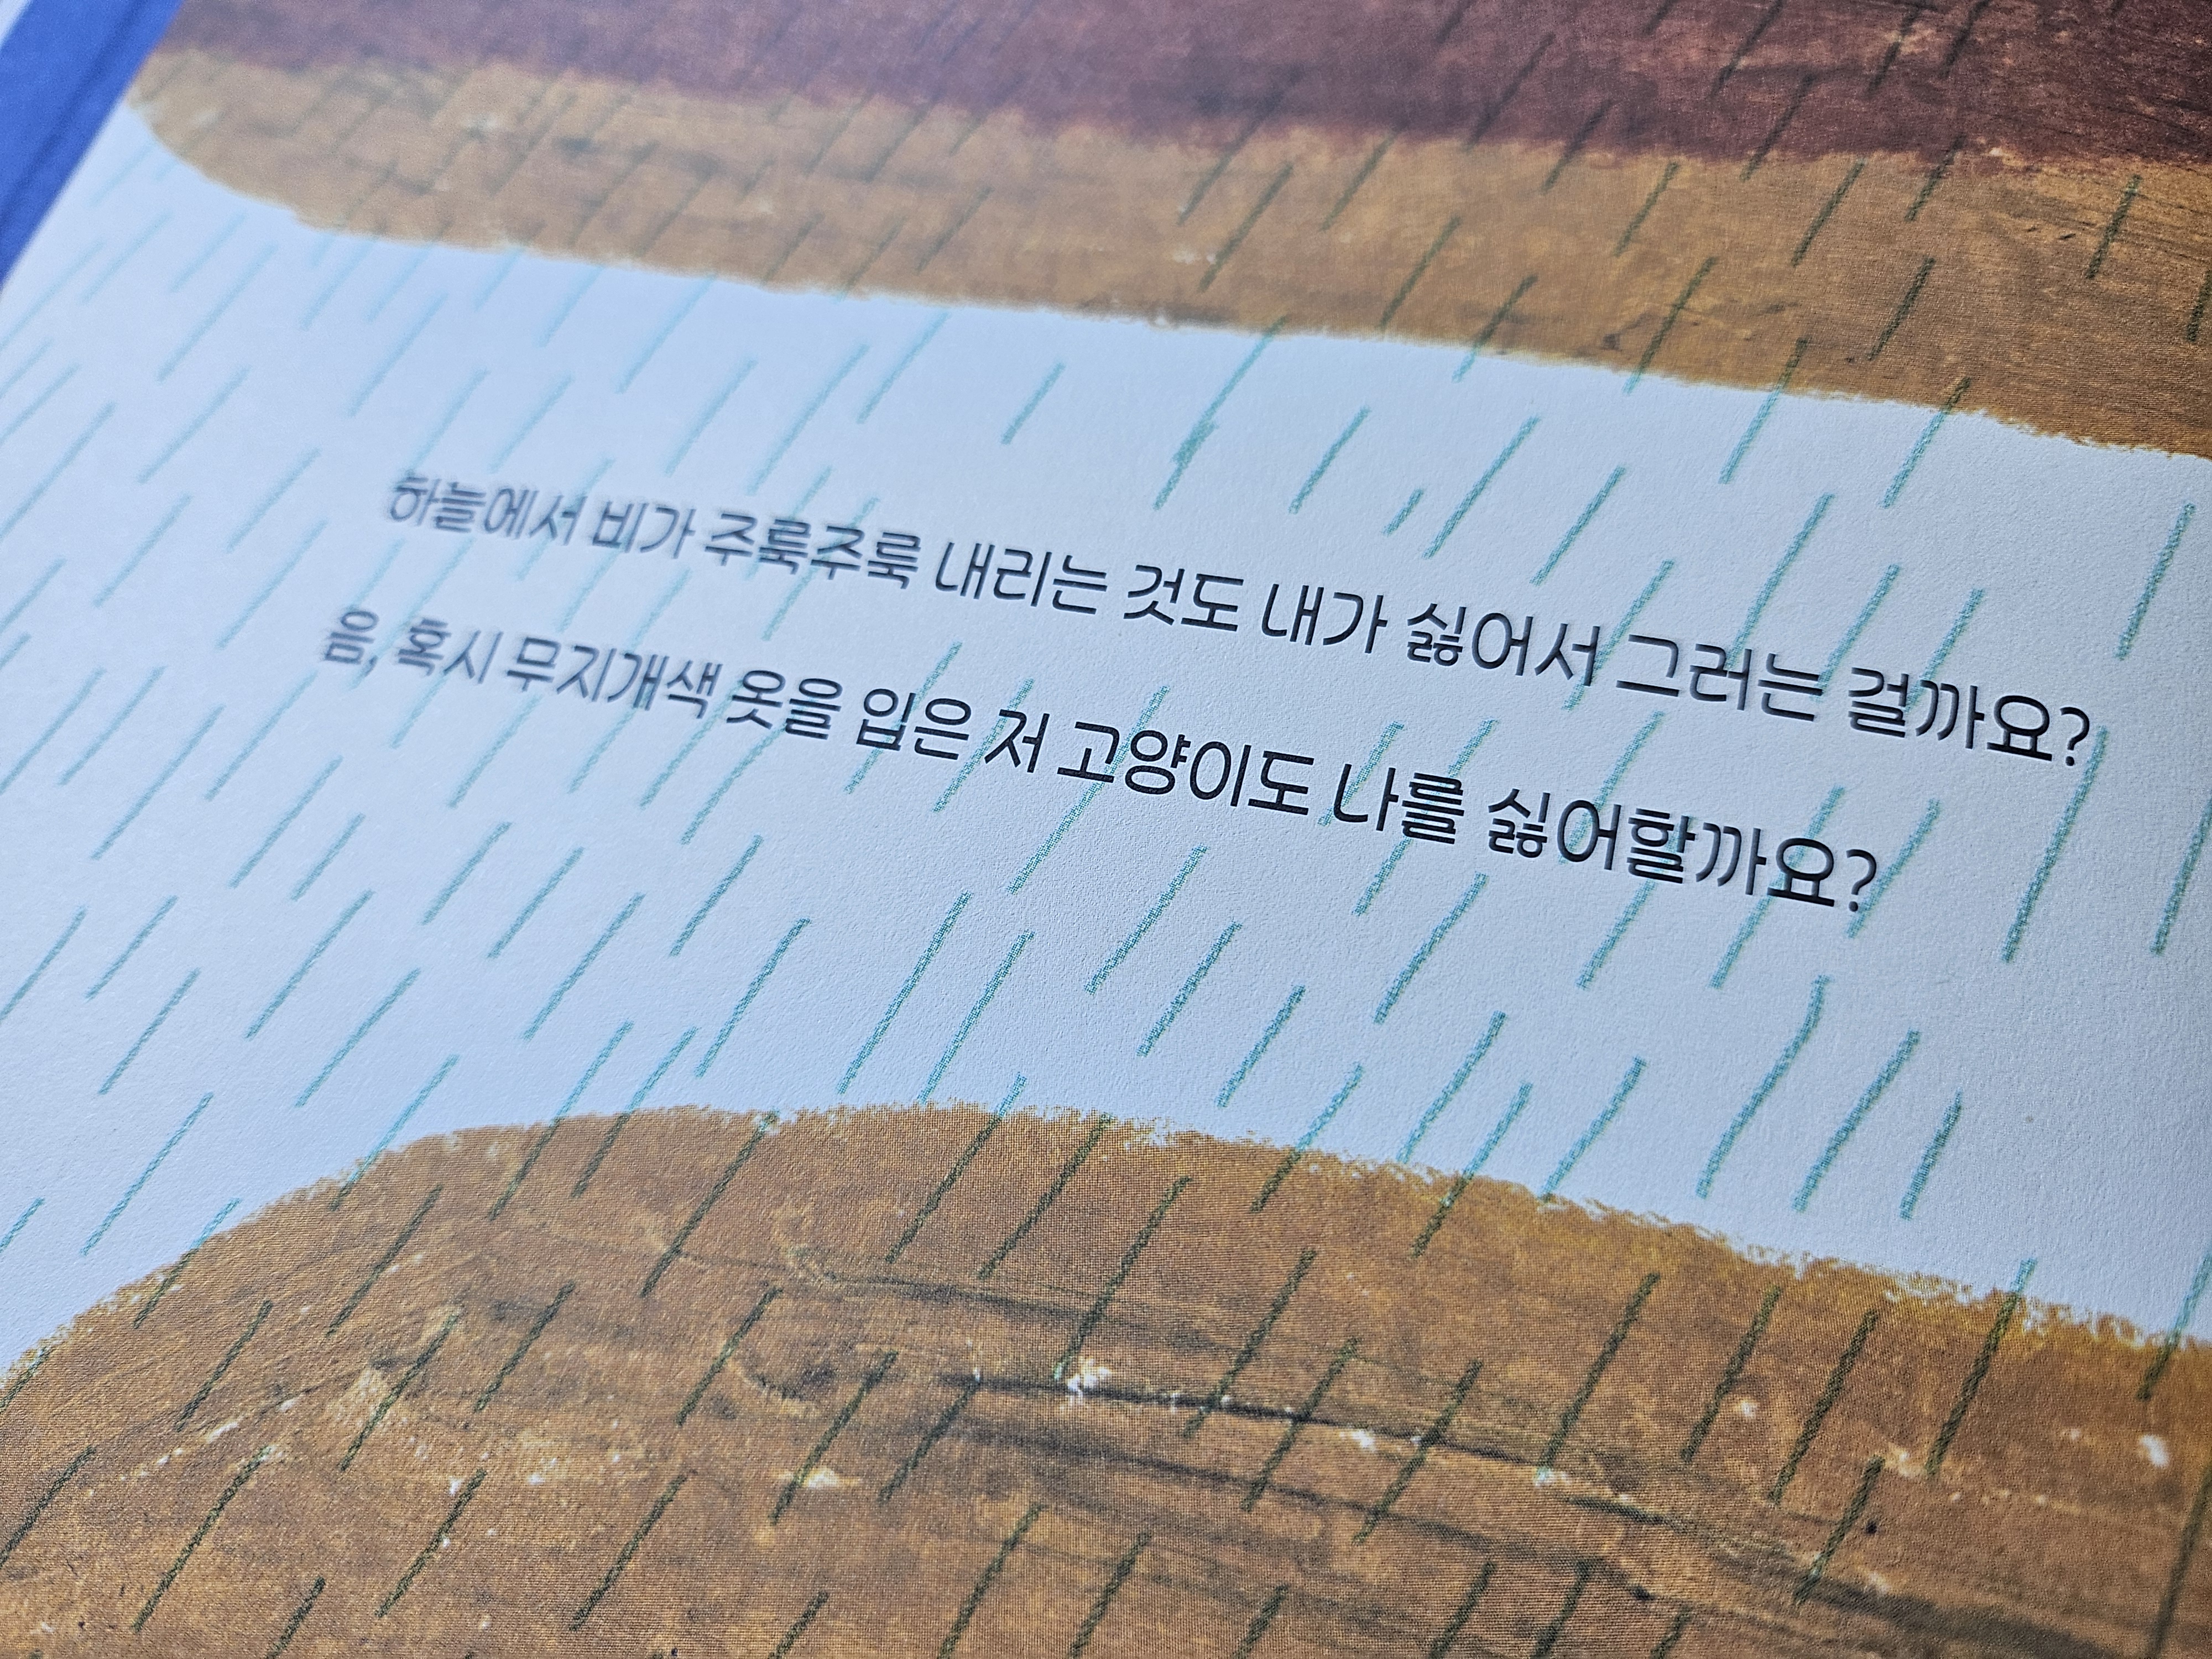 하늘에서 비가 주룩주룩 내리는 것도 내가 싫어서 그러는 걸까요?
음, 혹시 무지개색 옷을 입은 저 고양이도 나를 싫어할까요?